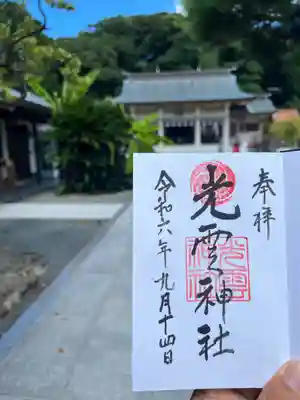 奉拝
光雲神社
令和六年九月十四日